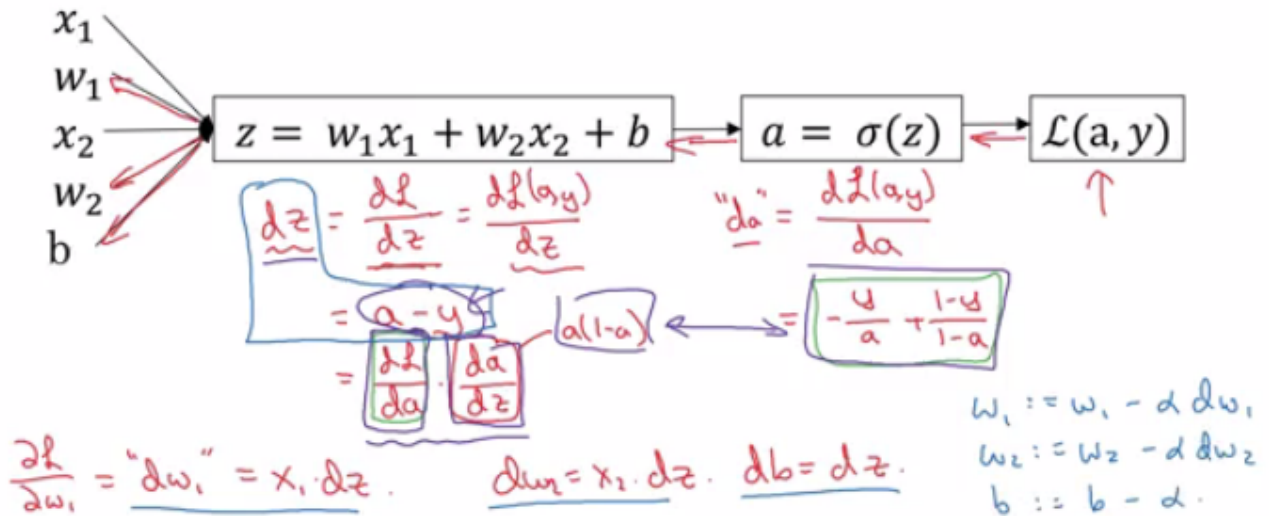 x₁
w₁
x₂
w₂
b
z = w₁x₁ + w₂x₂ + b
a = σ(z)
ℒ(a, y)
dz = dℒ/dz = dℒ(a,y)/dz
"da" = dℒ(a,y)/da
= a - y
a(1-a)
= -y/a + (1-y)/(1-a)
= dℒ/da · da/dz
∂ℒ/∂w₁ = "dw₁" = x₁·dz.
dw₂ = x₂·dz.
db = dz.
w₁ := w₁ - α dw₁
w₂ := w₂ - α dw₂
b := b - α.